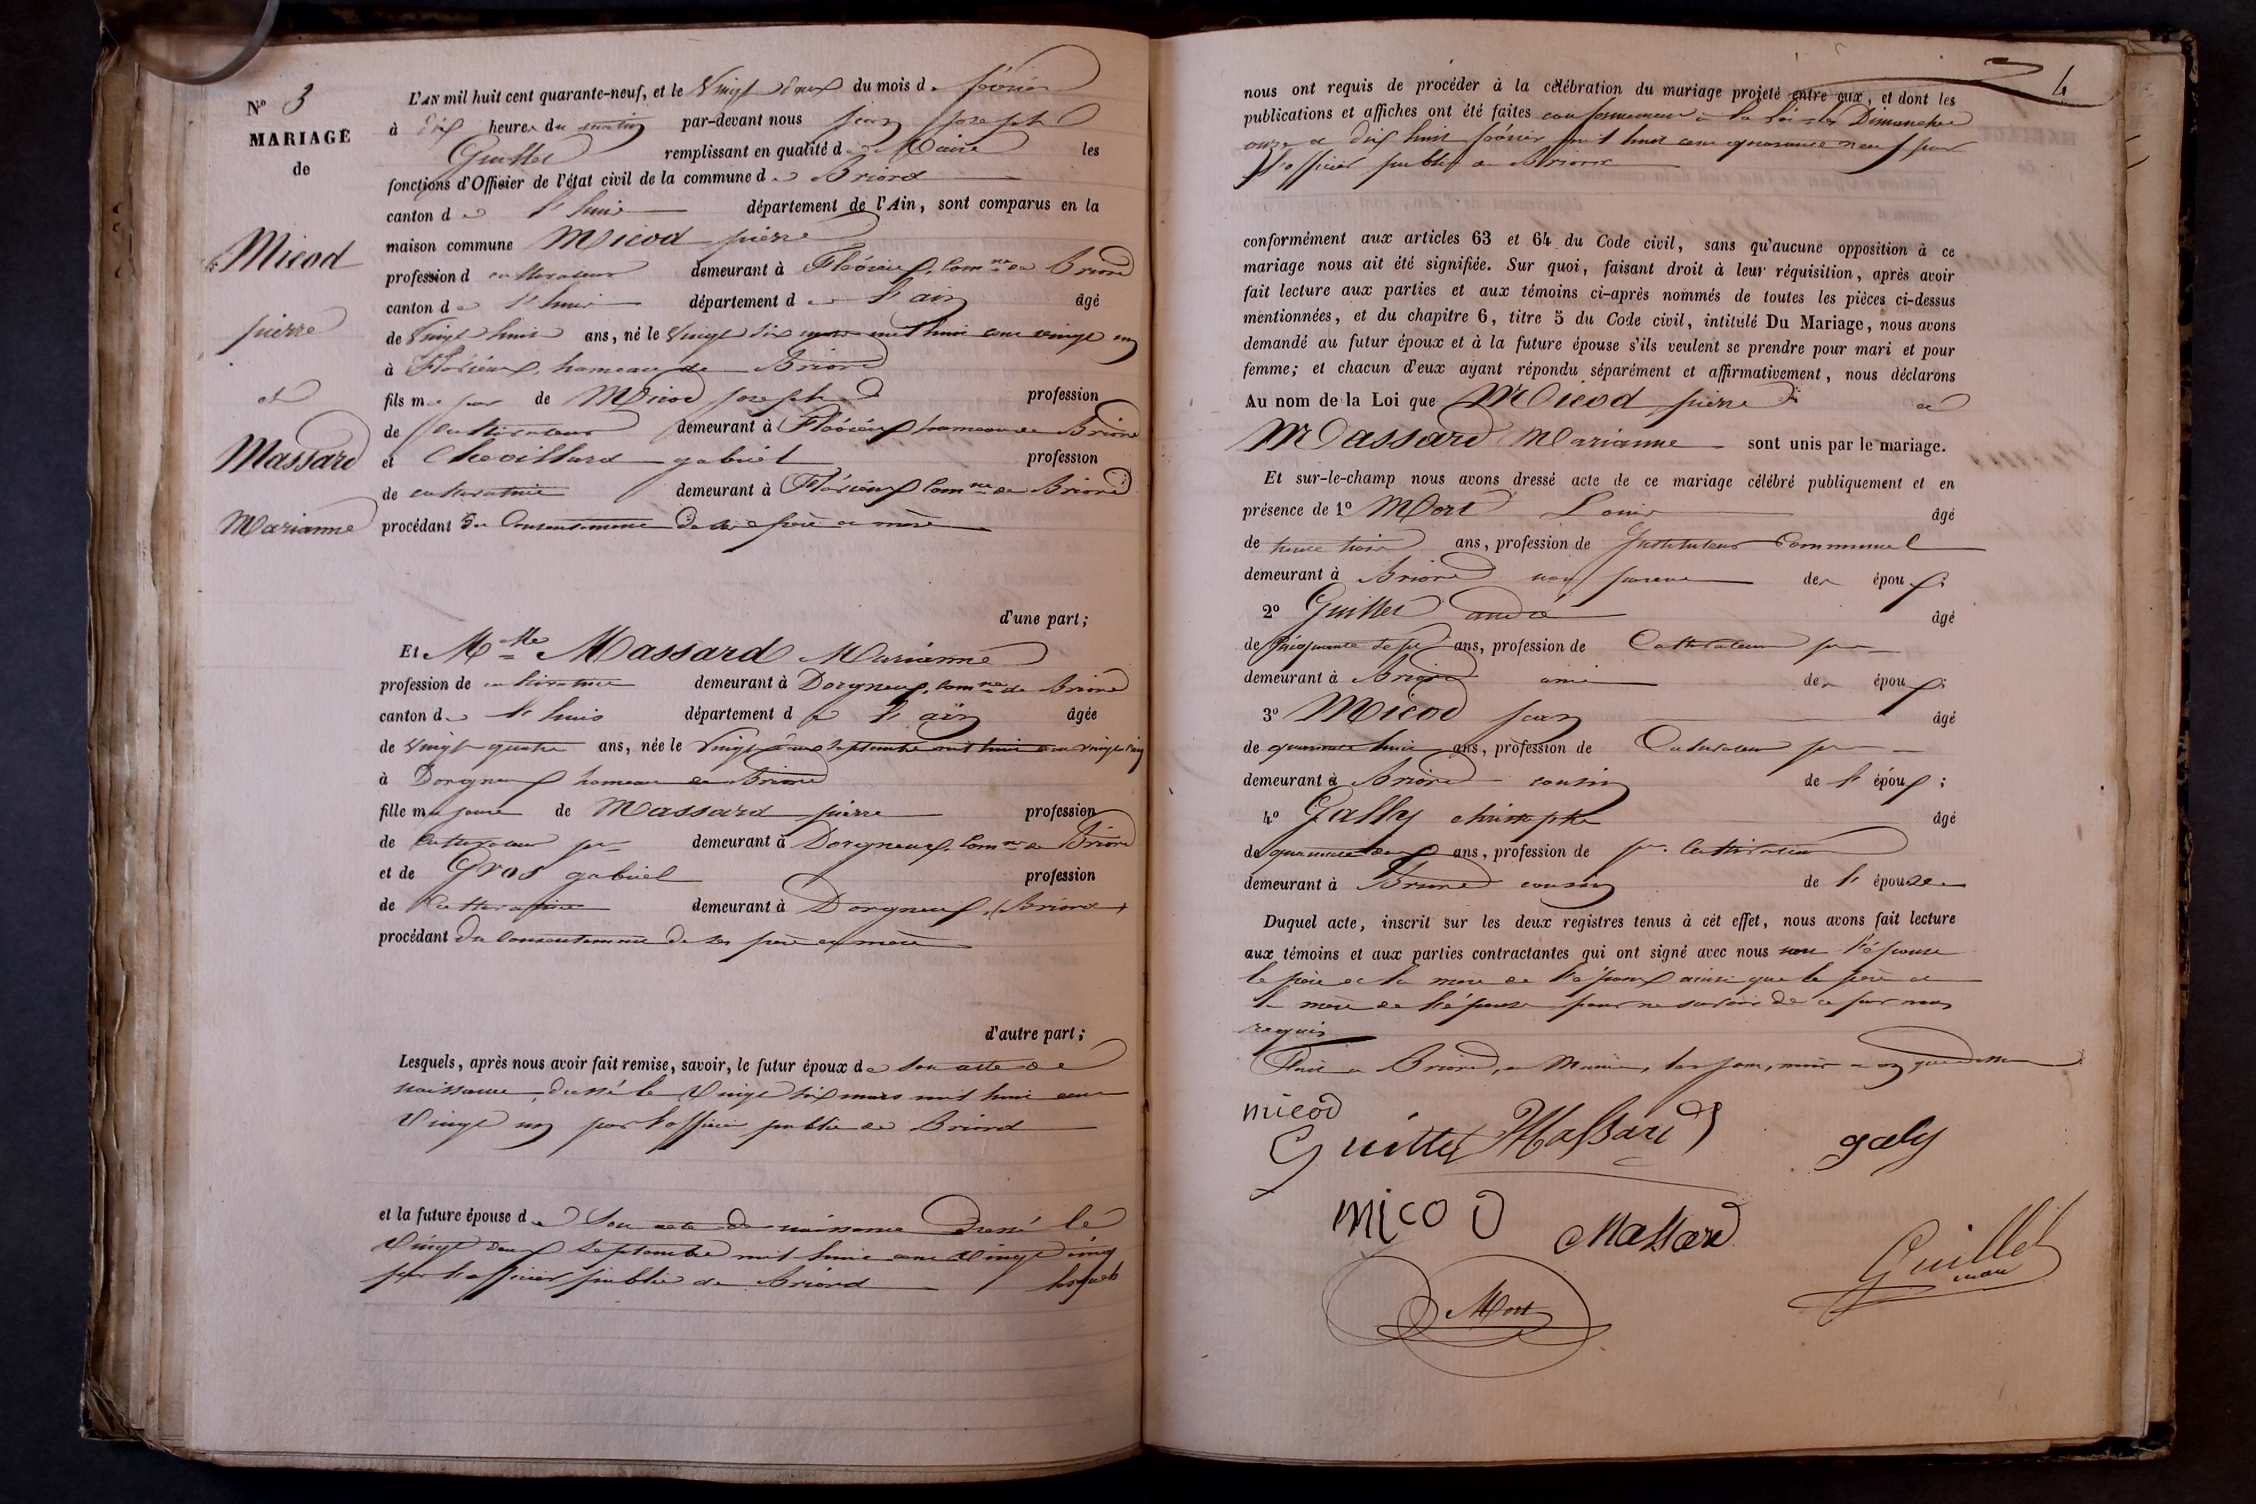 N° 3
MARIAGE
de
Micod
pierre
et
Massard
Marianne
L'AN mil huit cent quarante-neuf, et le Vingt deux du mois de février
à dix heures du matin par-devant nous jean joseph
Guillet remplissant en qualité de Maire les
fonctions d'Officier de l'état civil de la commune de Briord
canton de l'huis département de l'Ain, sont comparus en la
maison commune Micod pierre
profession de cultivateur demeurant à Flévieux, Comne de Briord
canton de l'huis département de l'ain âgé
de Vingt huit ans, né le Vingt six mars mil huit cent vingt un
à Flévieux, hameau de Briord
fils majeur de Micod joseph profession
de Cultivateur demeurant à Flévieux hameau de Briord
et Chevillard gabriel profession
de cultivatrice demeurant à Flévieux Comne de Briord
procédant du Consentement de ses père et mère
d'une part;
Et Mlle Massard Marianne
profession de cultivatrice demeurant à Dorgneux, Comne de Briord
canton de l'huis département de l'ain âgée
de vingt quatre ans, née le Vingt deux septembre mil huit cent vingt cinq
à Dorgneux hameau de Briord
fille majeure de Massard pierre profession
de Cultivateur pre demeurant à Dorgneux, Comne de Briord
et de Gros gabriel profession
de Cultivatrice demeurant à Dorgneux, (Briord)
procédant du Consentement de ses père et mère
d'autre part;
Lesquels, après nous avoir fait remise, savoir, le futur époux de Son acte de
naissance dressé le Vingt six mars mil huit cent
Vingt un par l'officier public de Briord
et la future épouse de Son acte de naissance dressé le
Vingt deux Septembre mil huit cent Vingt cinq
par l'officier public de Briord lesquels
4
nous ont requis de procéder à la célébration du mariage projeté entre eux, et dont les
publications et affiches ont été faites conformément à la loi les Dimanches
onze et dix huit février mil huit cent quarante neuf par
l'officier public de Briord
conformément aux articles 63 et 64 du Code civil, sans qu'aucune opposition à ce
mariage nous ait été signifiée. Sur quoi, faisant droit à leur réquisition, après avoir
fait lecture aux parties et aux témoins ci-après nommés de toutes les pièces ci-dessus
mentionnées, et du chapitre 6, titre 5 du Code civil, intitulé Du Mariage, nous avons
demandé au futur époux et à la future épouse s'ils veulent se prendre pour mari et pour
femme; et chacun d'eux ayant répondu séparément et affirmativement, nous déclarons
Au nom de la Loi que Micod pierre et
Massard Marianne sont unis par le mariage.
Et sur-le-champ nous avons dressé acte de ce mariage célébré publiquement et en
présence de 1° Mort Louis âgé
de trente trois ans, profession de Instituteur Communal
demeurant à Briord non parent des époux;
2° Guillet andré âgé
de Cinquante sept ans, profession de Cultivateur pre
demeurant à Briord ami des époux;
3° Micod jean âgé
de quarante huit ans, profession de Cultivateur pre
demeurant à Briord cousin de l'époux;
4° Gally christophe âgé
de quarante deux ans, profession de pre Cultivateur
demeurant à Briord cousin de l'épouse
Duquel acte, inscrit sur les deux registres tenus à cet effet, nous avons fait lecture
aux témoins et aux parties contractantes qui ont signé avec nous non l'épouse
le père et la mère de l'époux ainsi que le père et
la mère de l'épouse pour ne savoir de ce par nous
requis
Fait à Briord, en Mairie, les jour, mois et an que dessus
micod
Guillet Massard galy
micod Massard
Guillet
maire
Mort